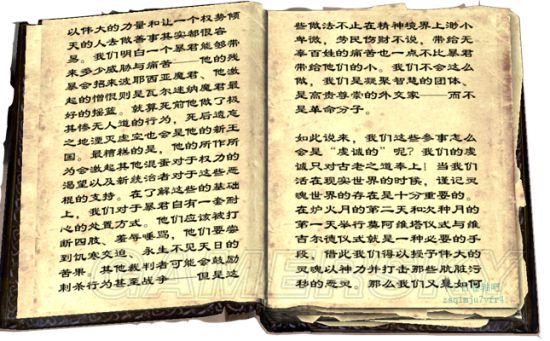 以伟大的力量和让一个权势倾
天的人去做善事其实都很容
易。我们明白一个暴君能够带
来多少威胁与痛苦——他的残
暴会招来波耶西亚魔君、他激
起的憎恨则是瓦尔迷纳魔君最
好的摇篮。就算死前他做了极
其惨无人道的行为，死后遗忘
之地湮灭虚空也会是他的新王
国。最糟糕的是，他的所作所
为会激起其他混蛋对于权力的
渴望以及新统治者对于这些恶
棍的支持。在了解这些的基础
上，我们对于暴君自有一套耐
心的处置方式。他们应该被打
断四肢、羞辱唾骂，他们要尝
到饥寒交迫、永生不见天日的
苦果。其他裁判者可能会鼓励
刺杀行为甚至战争，但是这
些做法不止在精神境界上渺小
卑微，劳民伤财不说，带给无
辜百姓的痛苦也一点不比暴君
带给他们的小。我们不会这么
做，我们是凝聚智慧的团体、
是高贵尊崇的外交家——而不
是革命分子。
如此说来，我们这些参事怎么
会是“虔诚的”呢？我们的虔
诚只对古老之道奉上！当我们
活在现实世界的时候，谨记灵
魂世界的存在是十分重要的。
在炉火月的第二天和次种月的
第一天举行莫阿维塔仪式与维
吉尔德仪式就是一种必要的手
段，借此我们得以授予伟大的
灵魂以神力并打击那些肮脏污
秽的恶灵。那么我们又是如何
GAMERSKY
zaqimju7vfr4